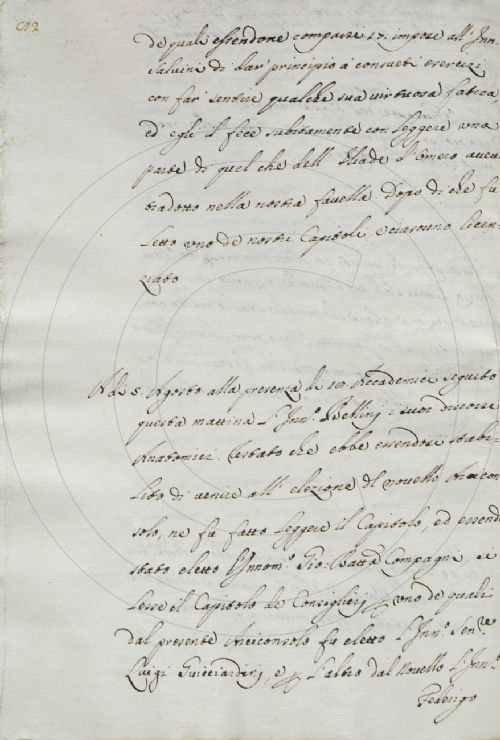 de quali essendone comparsi 17. impose all' Inn.
Salvini di dar' principio a' consueti esercizi
con far' sentire qualche sua virtuosa fatica
ed egli il fece subitamente con leggere una
parte di quel che dell' Iliade d' Omero avea
tradotto nella nostra favella. Dopo di che fu
letto uno de nostri Capitoli, e ciascuno licen-
ziato
A di 5. Agosto alla presenza di Accademici seguitò
questa mattina l' Inn.º Bellini i suoi discorsi
Anatomici. Terminato che ebbe essendosi stabi-
lito di venire all' elezione del novello Arcicon
solo, ne fu fatto leggere il Capitolo, ed essend
stato eletto l' Innom.º Gio: Batta Compagni si
lesse il Capitolo de Consiglieri, uno de quali
dal presente Arciconsolo fu eletto l' Inn.º Sen.re
Luigi Guicciardini, e l' altro dal Novello l' Inn.º
Federigo